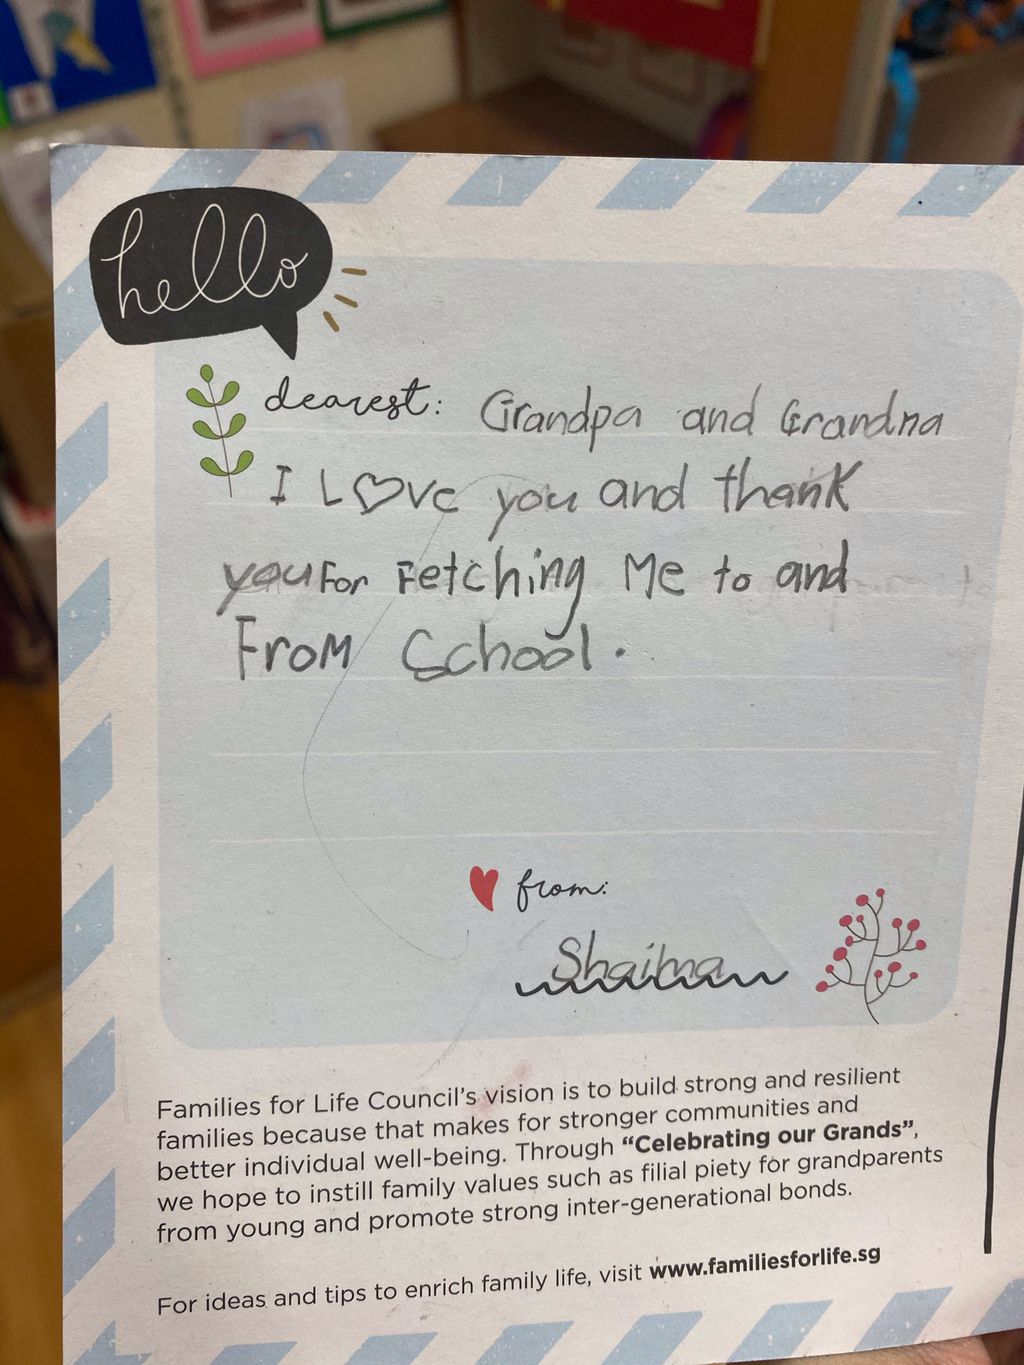 hello
dearest: Grandpa and Grandma
I LOve you and thank
you For Fetching Me to and
From School.
from:
Shaima
Families for Life Council's vision is to build strong and resilient
families because that makes for stronger communities and
better individual well-being. Through “Celebrating our Grands”,
we hope to instill family values such as filial piety for grandparents
from young and promote strong inter-generational bonds.
For ideas and tips to enrich family life, visit www.familiesforlife.sg